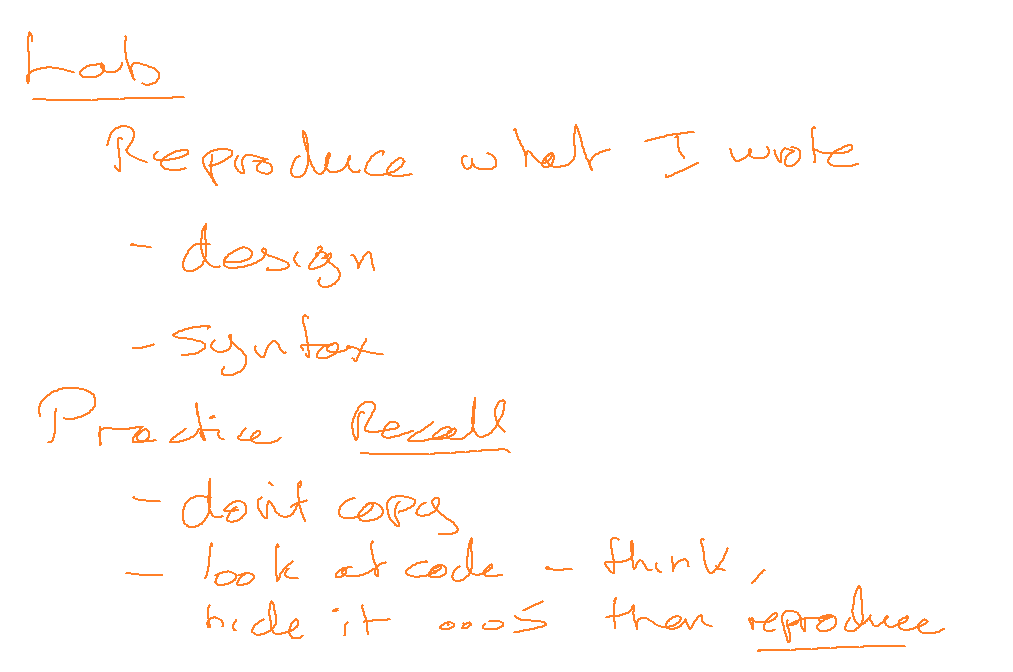 Lab
Reproduce what I wrote
- design
- Syntax
Practice Recall
- don't copy
- look at code - think,
hide it then reproduce